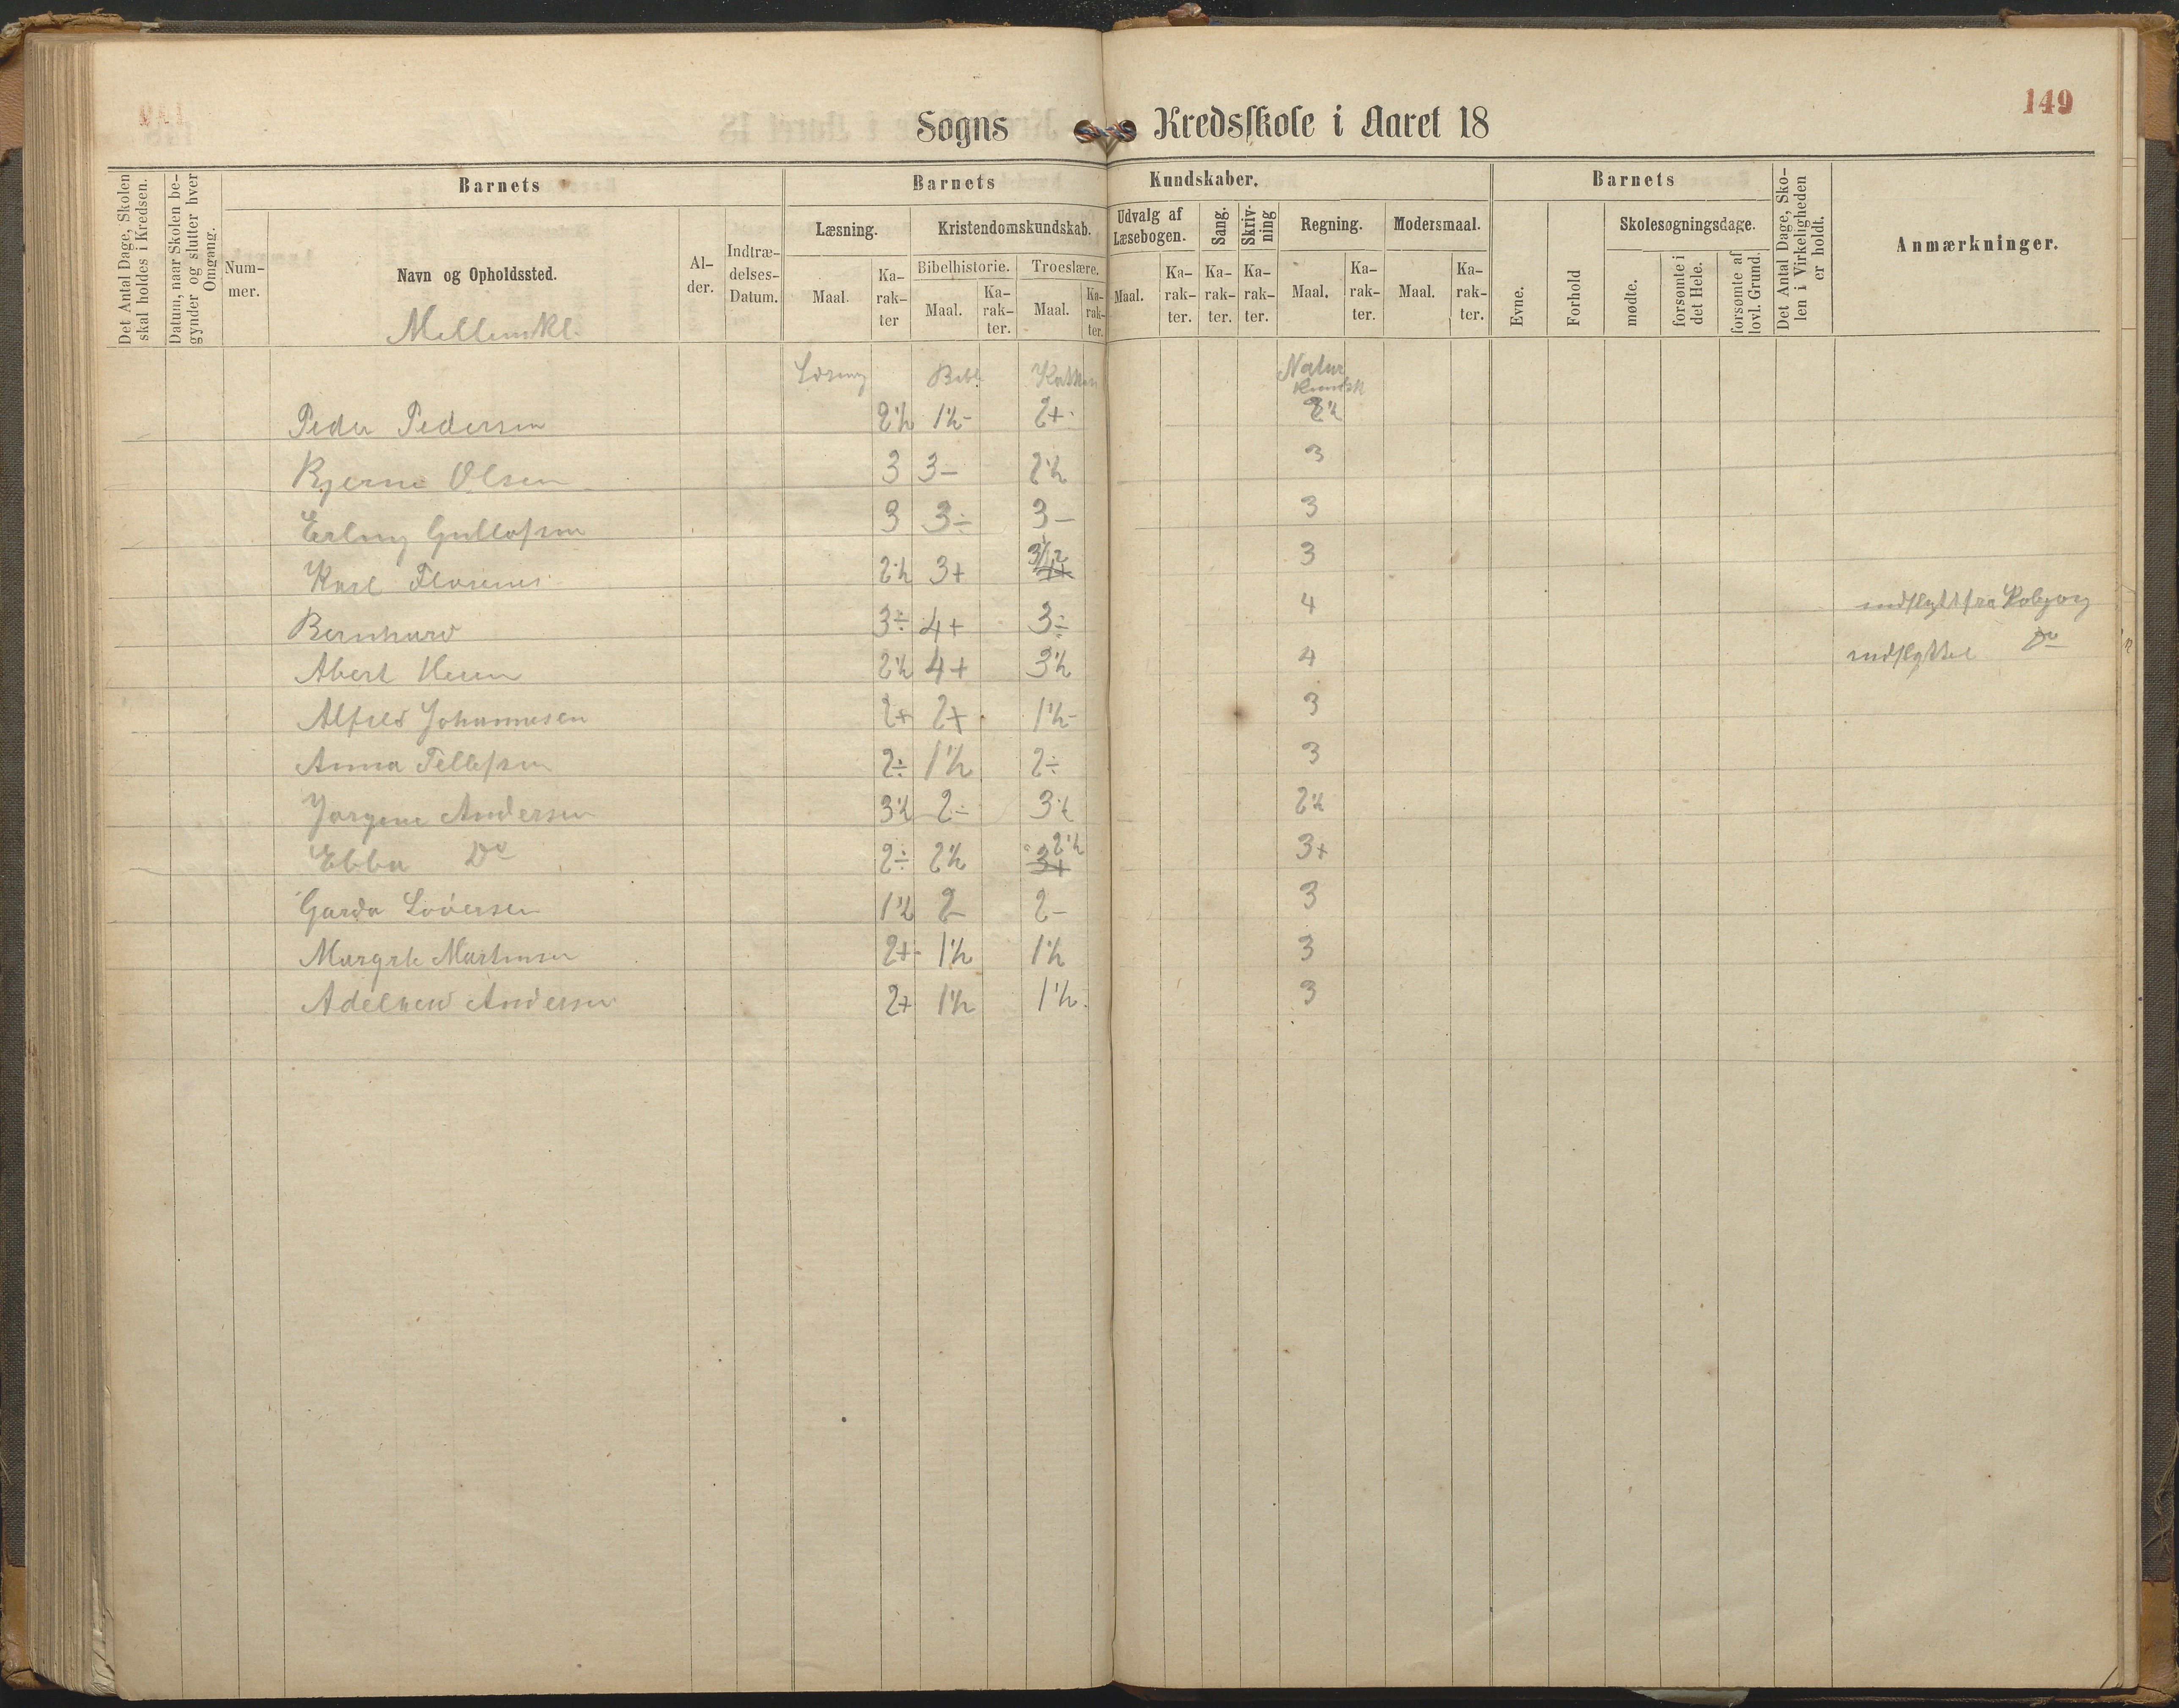 149
Sogns Kredsskole i Aaret 18
Det Antal Dage, Skolen skal holdes i Kredsen.
Datum, naar Skolen begynder og slutter hver Omgang.
Barnets
Nummer.
Navn og Opholdssted.
Alder.
Indtrædelses-Datum.
Barnets Kundskaber.
Læsning.
Maal.
Karakter
Kristendomskundskab.
Bibelhistorie.
Maal.
Karakter.
Troeslære.
Maal.
Karakter.
Udvalg af Læsebogen.
Maal.
Karakter.
Sang.
Karakter.
Skrivning
Karakter.
Regning.
Maal.
Karakter.
Modersmaal.
Maal.
Karakter.
Barnets
Evne.
Forhold
Skolesøgningsdage.
mødte.
forsømte i det Hele.
forsømte af lovl. Grund.
Det Antal Dage, Skolen i Virkeligheden er holdt.
Anmærkninger.
Mellemkl.
Læsning Bibl. Natur
Peder Pedersen 2½ 1½- 2+ 2½
Bjerne Olsen 3 3- 2½ 3
Erling Gullofsen 3 3÷ 3- 3
Karl 2½ 3+ 3½ 3
Bernhard 3÷ 4+ 3÷ 4 indflyt fra
Abert 2½ 4+ 3½ 4 indflyttet Do
Alfred Johannesen 2+ 2+ 1½- 3
Anna Tellefsen 2÷ 1½ 2÷ 3
Jørgine Andersen 3½ 2÷ 3½ 2½
Ebba Do 2÷ 2½ 3+ 2½ 3+
Garda 1½ 2- 2- 3
Margrete Martinsen 2+ 1½ 1½ 3
Adelheid Andersen 2+ 1½ 1½ 3